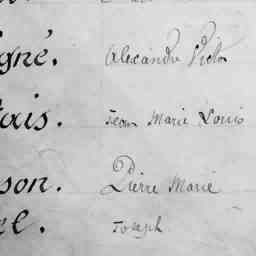 gné. Alexandre Victor
tais. Jean Marie Louis
son. Pierre Marie
el. Joseph